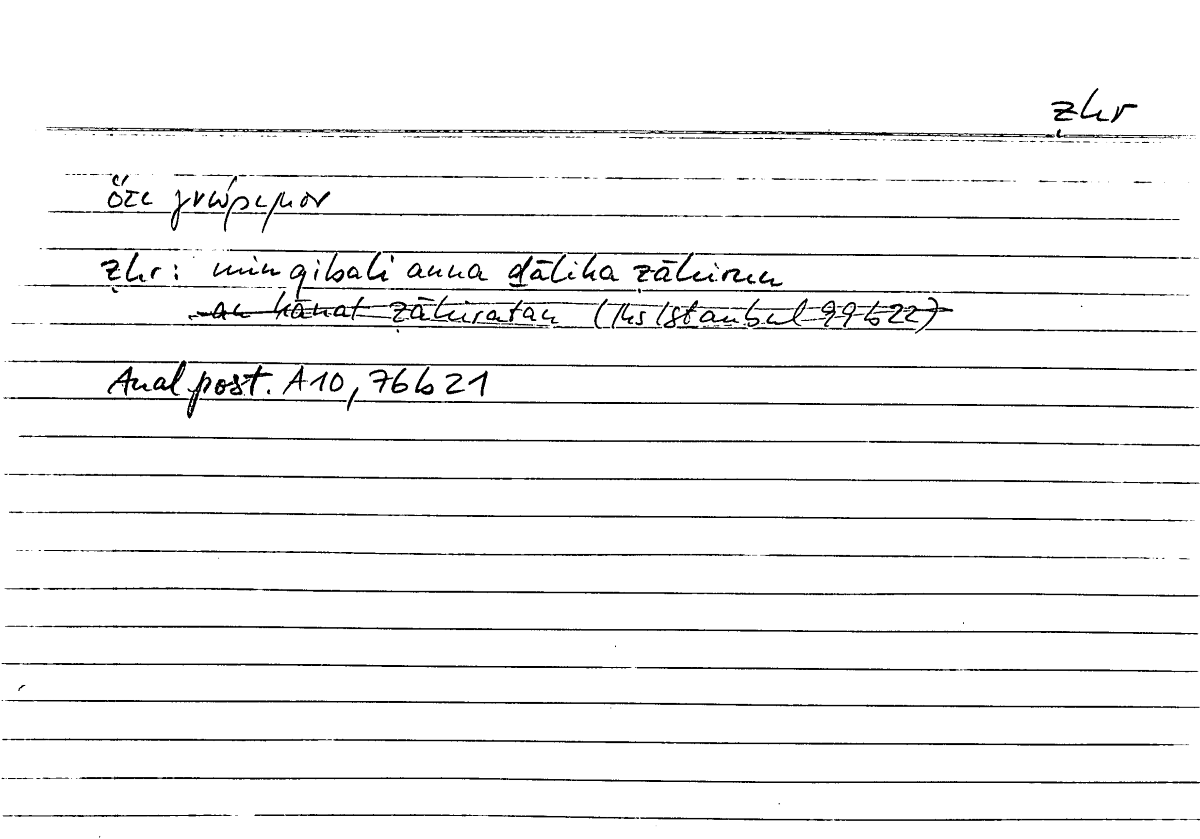 ẓhr
ὅτι γνώριμον
ẓhr: min qibali anna ḏālika ẓāhirun
an kānat ẓāhiratan (Hs Istanbul 99b22)
Anal. post. A10, 76b21